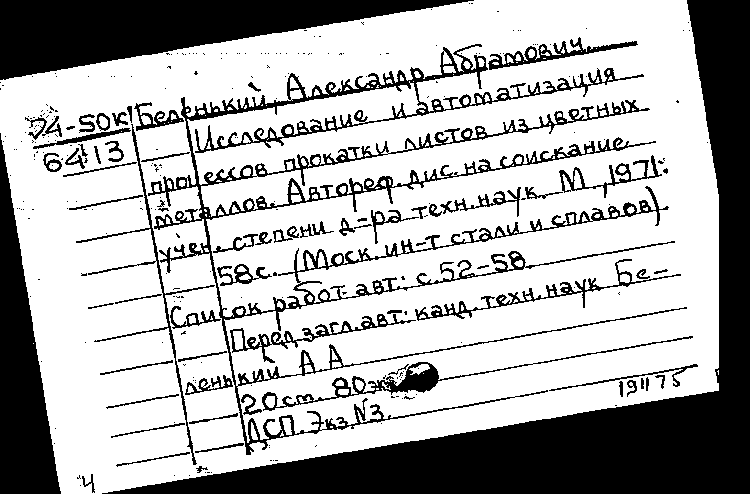 Д4-50к Беленький, Александр Абрамович.
6413 Исследование и автоматизация
процессов прокатки листов из цветных
металлов. Автореф. дис. на соискание
учен. степени д-ра техн. наук. М., 1971.
58с. (Моск. ин-т стали и сплавов).
Список работ авт.: с. 52-58.
Перед загл. авт.: канд. техн. наук Бе-
ленький А А
20см. 80эк
ДСП. Экз. №3.
4